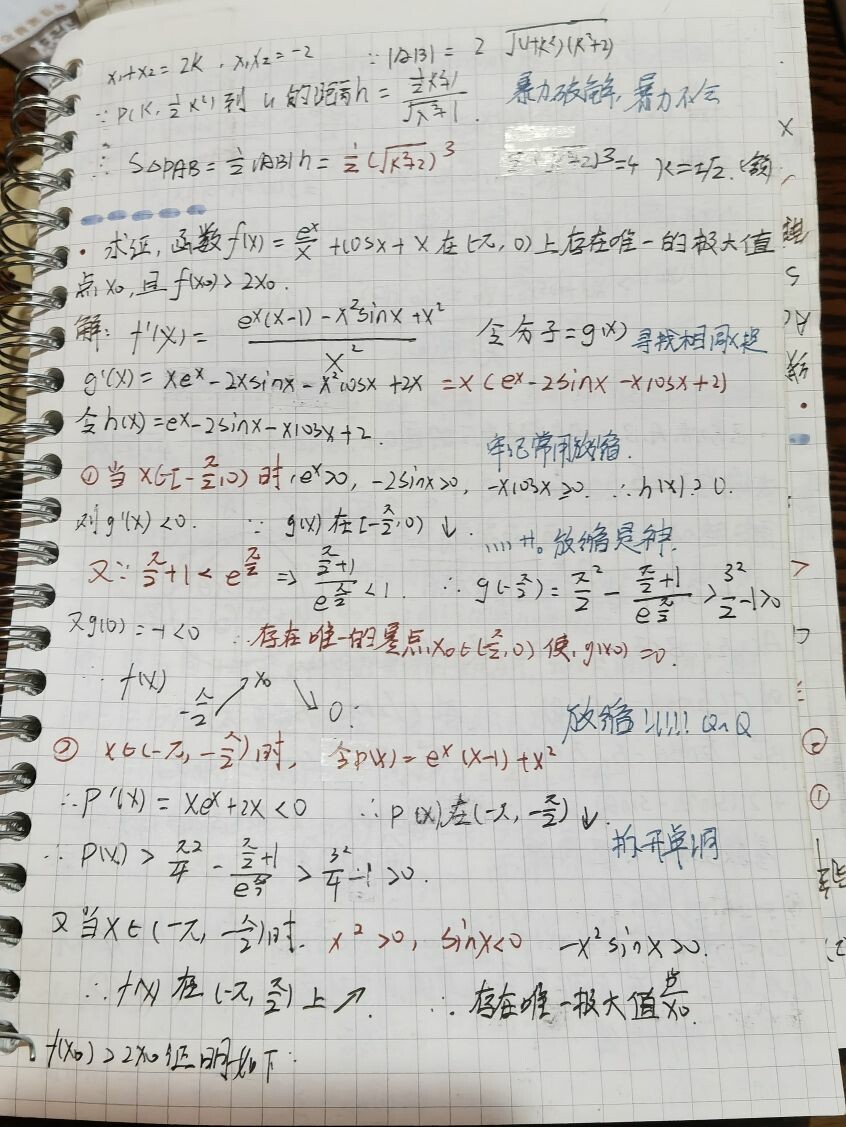 x₁+x₂=2k, x₁x₂=-2 ∵|AB|=2√(1+k²)(k²+2)
∵P(k, ½k²)到 的距离h=(½k²+1)/√(k²+1) 暴力破解,暴力不会
∴S△PAB=½|AB|h=½(√k²+2)³ +2)³=4 k=±√2.
· 求证,函数f(x)=eˣ/x+cosx+x在(-π,0)上存在唯一的极大值
点x₀,且f(x₀)>2x₀.
解: f'(x)=(eˣ(x-1)-x²sinx+x²)/x² 令分子=g(x) 寻找相同x提
g'(x)=xeˣ-2xsinx-x²cosx+2x=x(eˣ-2sinx-xcosx+2)
令h(x)=eˣ-2sinx-xcosx+2.
牢记常用放缩.
①当x∈[-π/2,0)时,eˣ>0, -2sinx>0, -xcosx≥0. ∴h(x)>0.
则g'(x)<0. ∵g(x)在[-π/2,0)↓.
放缩是神.
又∵π/2+1<e^(π/2) ⇒ (π/2+1)/e^(π/2)<1. ∴g(-π/2)=π²/2-(π/2+1)/e^(π/2)>3²/2-1>0
又g(0)=-1<0 ∴存在唯一的零点x₀∈(-π/2,0)使g(x₀)=0.
∴f(x) -π/2 ↗ x₀ ↘ 0:
放缩!!!!! QnQ
② x∈(-π,-π/2)时, 令p(x)=eˣ(x-1)+x²
∴p'(x)=xeˣ+2x<0 ∴p(x)在(-π,-π/2)↓.
拆开单调
∴p(x)>π²/4-(π/2+1)/e^(π/2)>3²/4-1>0.
又当x∈(-π,-π/2)时. x²>0, sinx<0 -x²sinx>0.
∴f(x)在(-π,π/2)上↗. ∴存在唯一极大值点x₀
f(x₀)>2x₀证明如下: